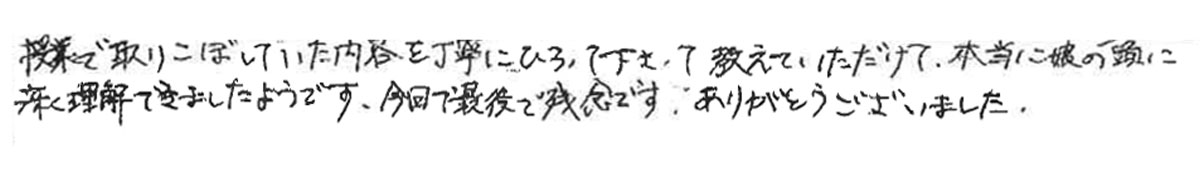 授業で取りこぼしていた内容を丁寧にひろって下さって教えていただけて、本当に娘の頭に
深く理解できましたようです、今回で最後で残念です。ありがとうございました。